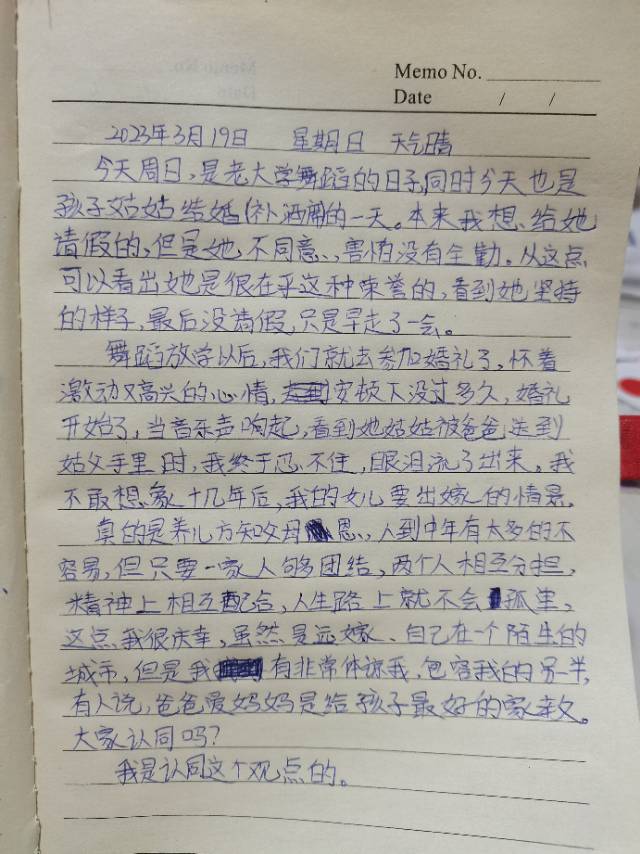 Memo No.
Date / /
2023年3月19日 星期日 天气晴
今天周日,是老大学舞蹈的日子,同时今天也是
孩子姑姑结婚(补洒席)的一天。本来我想、给她
请假的,但是她不同意、害怕没有全勤。从这点
可以看出她是很在乎这种荣誉的,看到她坚持
的样子,最后没请假,只是早走了一会。
舞蹈放学以后,我们就去参加婚礼了,怀着
激动又高兴的心情,安顿下没过多久,婚礼
开始了,当音乐声响起,看到她姑姑被爸爸送到
姑父手里时,我终于忍不住,眼泪流了出来。我
不敢想象十几年后,我的女儿要出嫁的情景.
真的是养儿方知父母恩、,人到中年有太多的不
容易,但只要一家人够团结,两个人相互分担,
精神上相互配合,人生路上就不会孤单,
这点我很庆幸,虽然是远嫁、自己在一个陌生的
城市,但是我有非常体谅我,包容我的另一半,
有人说,爸爸爱妈妈是给孩子最好的家教。
大家认同吗?
我是认同这个观点的。